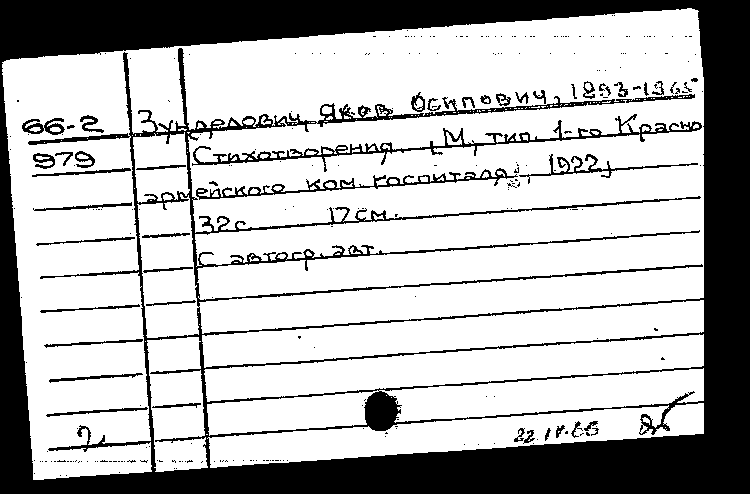 66-2 Зунделович, Яков Осипович, 1893-1965
979 Стихотворения. [М., тип. 1-го Красно
армейского ком. госпиталя], 1922,
32с. 17см.
С автогр. авт.
22.IV.66